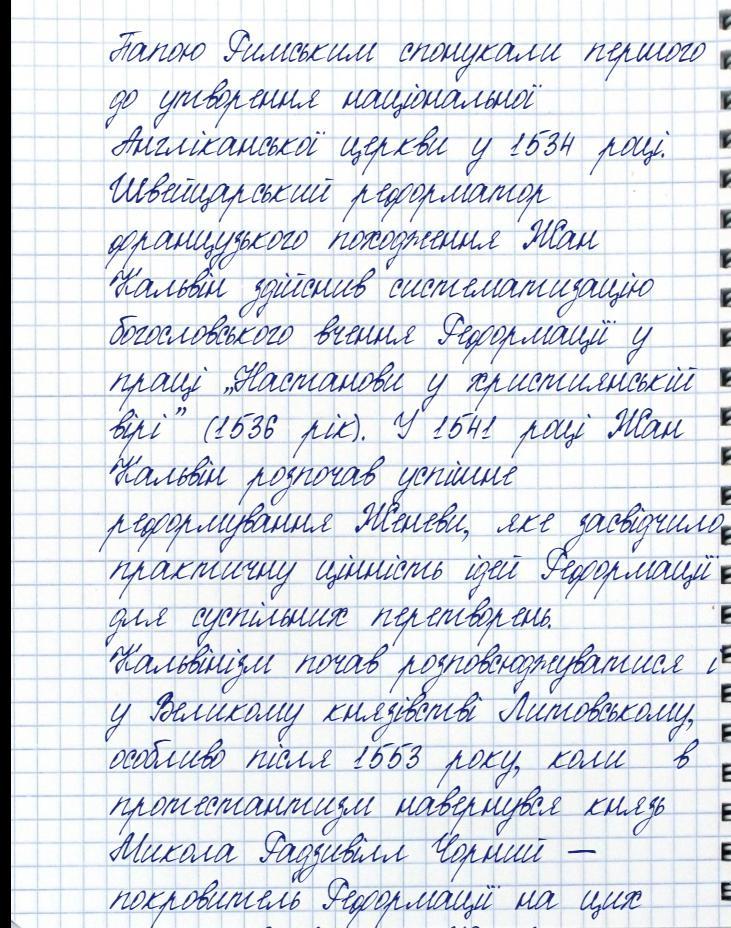 Папою Римським спонукали першого
до утворення національної
Англіканської церкви у 1534 році.
Швейцарський реформатор
французького походження Жан
Кальвін здійснив систематизацію
богословського вчення Реформації у
праці „Настанови у християнській
вірі” (1536 рік). У 1541 році Жан
Кальвін розпочав успішне
реформування Женеви, яке засвідчило
практичну цінність ідей Реформації
для суспільних перетворень.
Кальвінізм почав розповсюджуватися і
у Великому князівстві Литовському,
особливо після 1553 року, коли в
протестантизм навернувся князь
Микола Радзивілл Чорний —
покровитель Реформації на цих